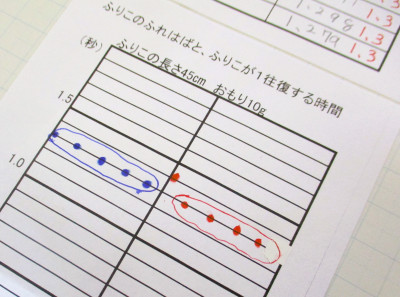 1.298 1.3
1.279 1.3
ふりこのふれはばと、ふりこが1往復する時間
ふりこの長さ45cm おもり10g
(秒)
1.5
1.0